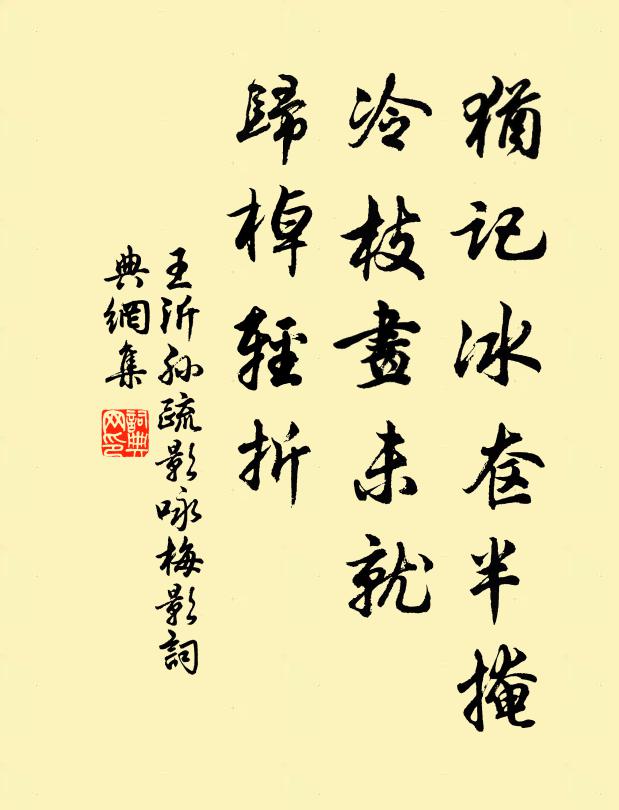 猶記冰奁半掩
冷枝畫未就
歸棹輕折
王沂孫疏影咏梅影詞
典網集
詞典
网印